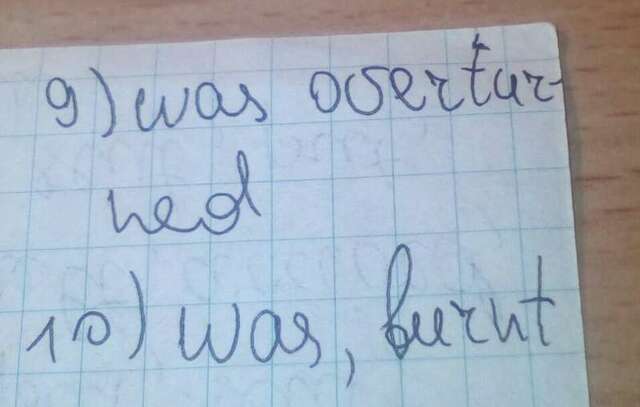 9) was overtur-
ned
10) was, burnt